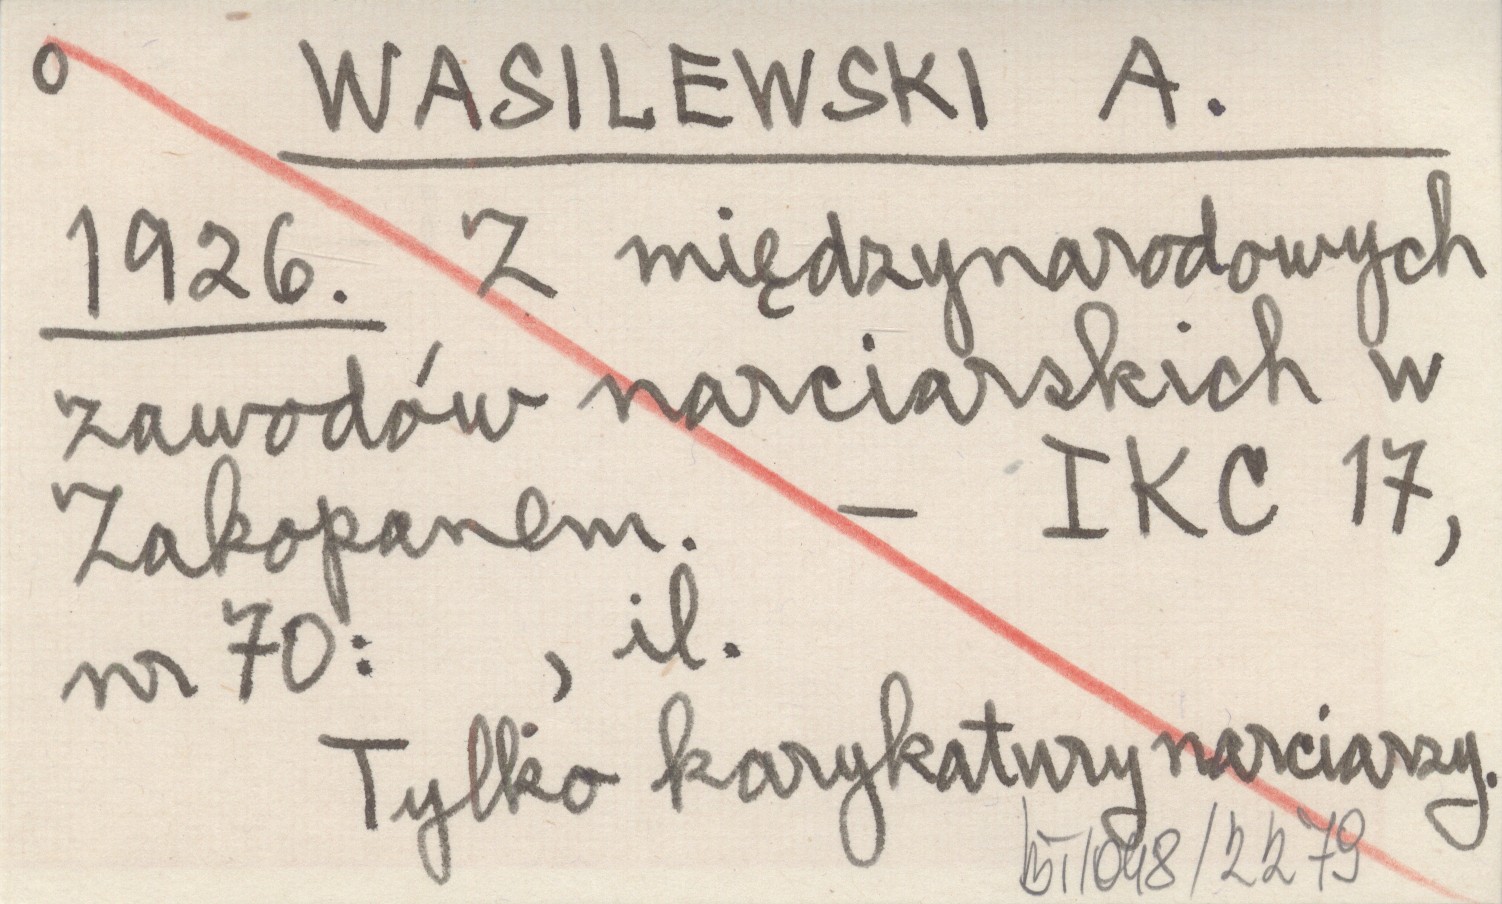 o WASILEWSKI A.
1926. Z międzynarodowych
zawodów narciarskich w
Zakopanem. – IKC 17,
nr 70: , il.
Tylko karykatury narciarzy.
/048/2279